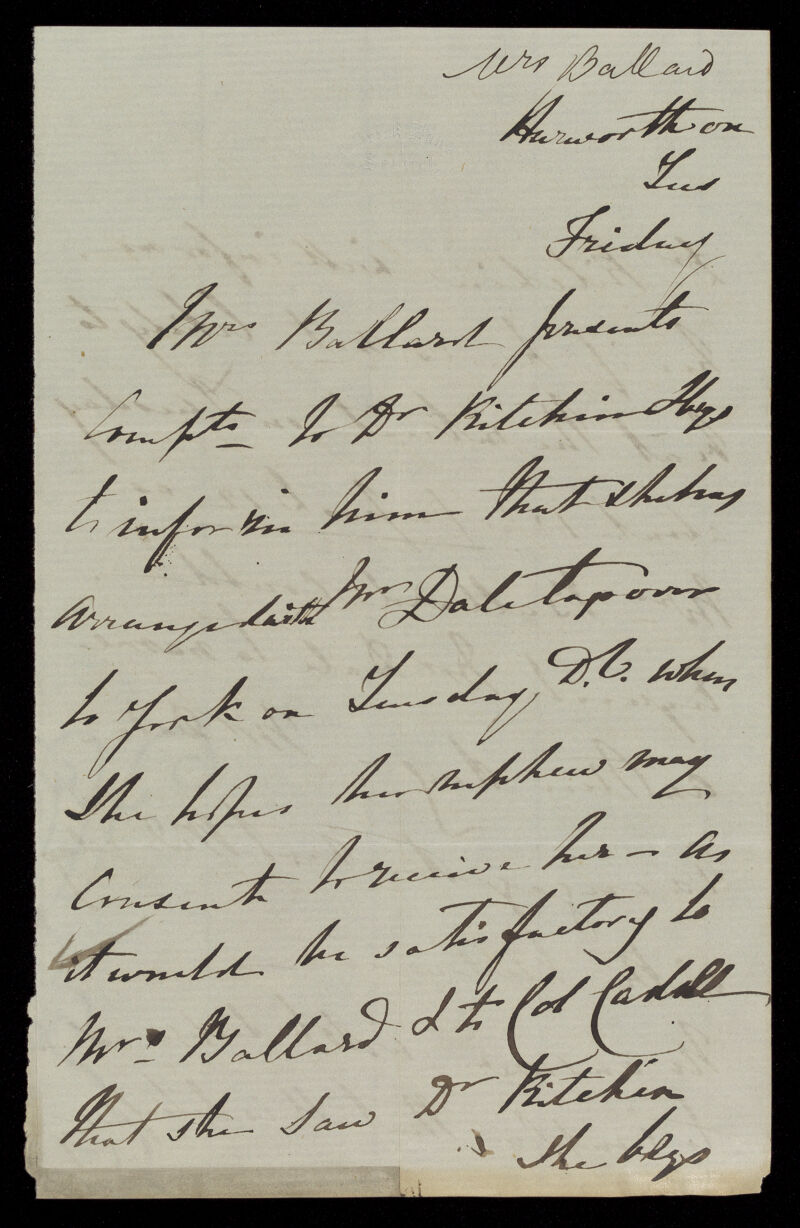 Mrs Ballard
Hurworth on
Tees
Friday
Mrs Ballard presents
Compts to Dr Kitchin & begs
to inform him that she has
arranged with Mrs Dale to go over
to York on Tuesday D.V. when
she hopes her nephew may
consent to receive her – as
it would be satisfactory to
Mrs Ballard & to Col Cadell
that she saw Dr Kitchin
she begs